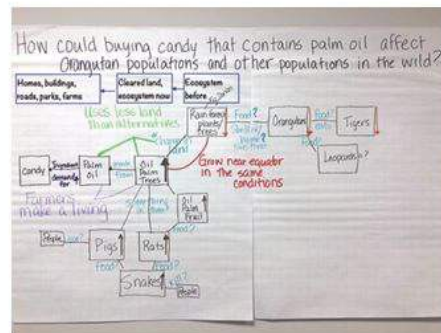 How could buying candy that contains palm oil affect
Orangutan populations and other populations in the wild?
Homes, buildings,
roads, parks, farms
Cleared land,
ecosystem now
Ecosystem
before
Uses less land
than alternatives
Rain forest
plants/
trees
Food?
Shelter/
home?
Orangutans
Food?
eats
Tigers
Food?
Leopards?
Change
land
Grow near equator
in the same
conditions
Candy
Ingredient
demand
for
Palm
oil
made
from
Oil
Palm
Trees
Farmers
make a living
Oil
Palm
Fruit
Food?
People
Pigs
Rats
Food?
Food?
Snakes
Kill?
People